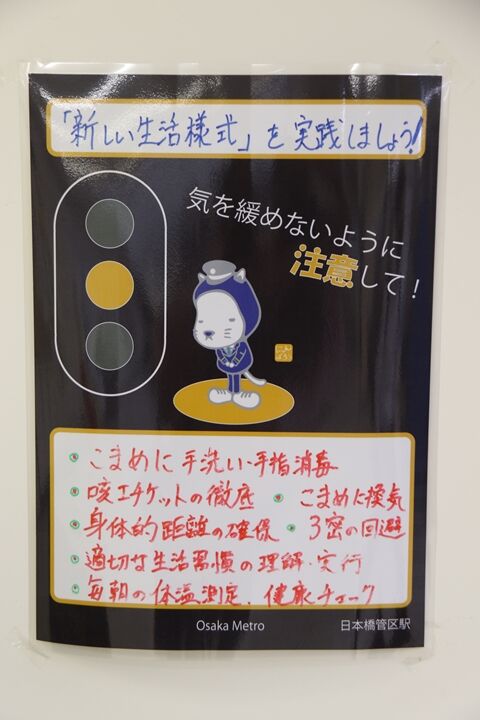 「新しい生活様式」を実践しましょう!
気を緩めないように
注意して!
・こまめに手洗い・手指消毒
・咳エチケットの徹底 ・こまめに換気
・身体的距離の確保 ・3密の回避
・適切な生活習慣の理解・実行
・毎朝の体温測定、健康チェック
Osaka Metro 日本橋管区駅